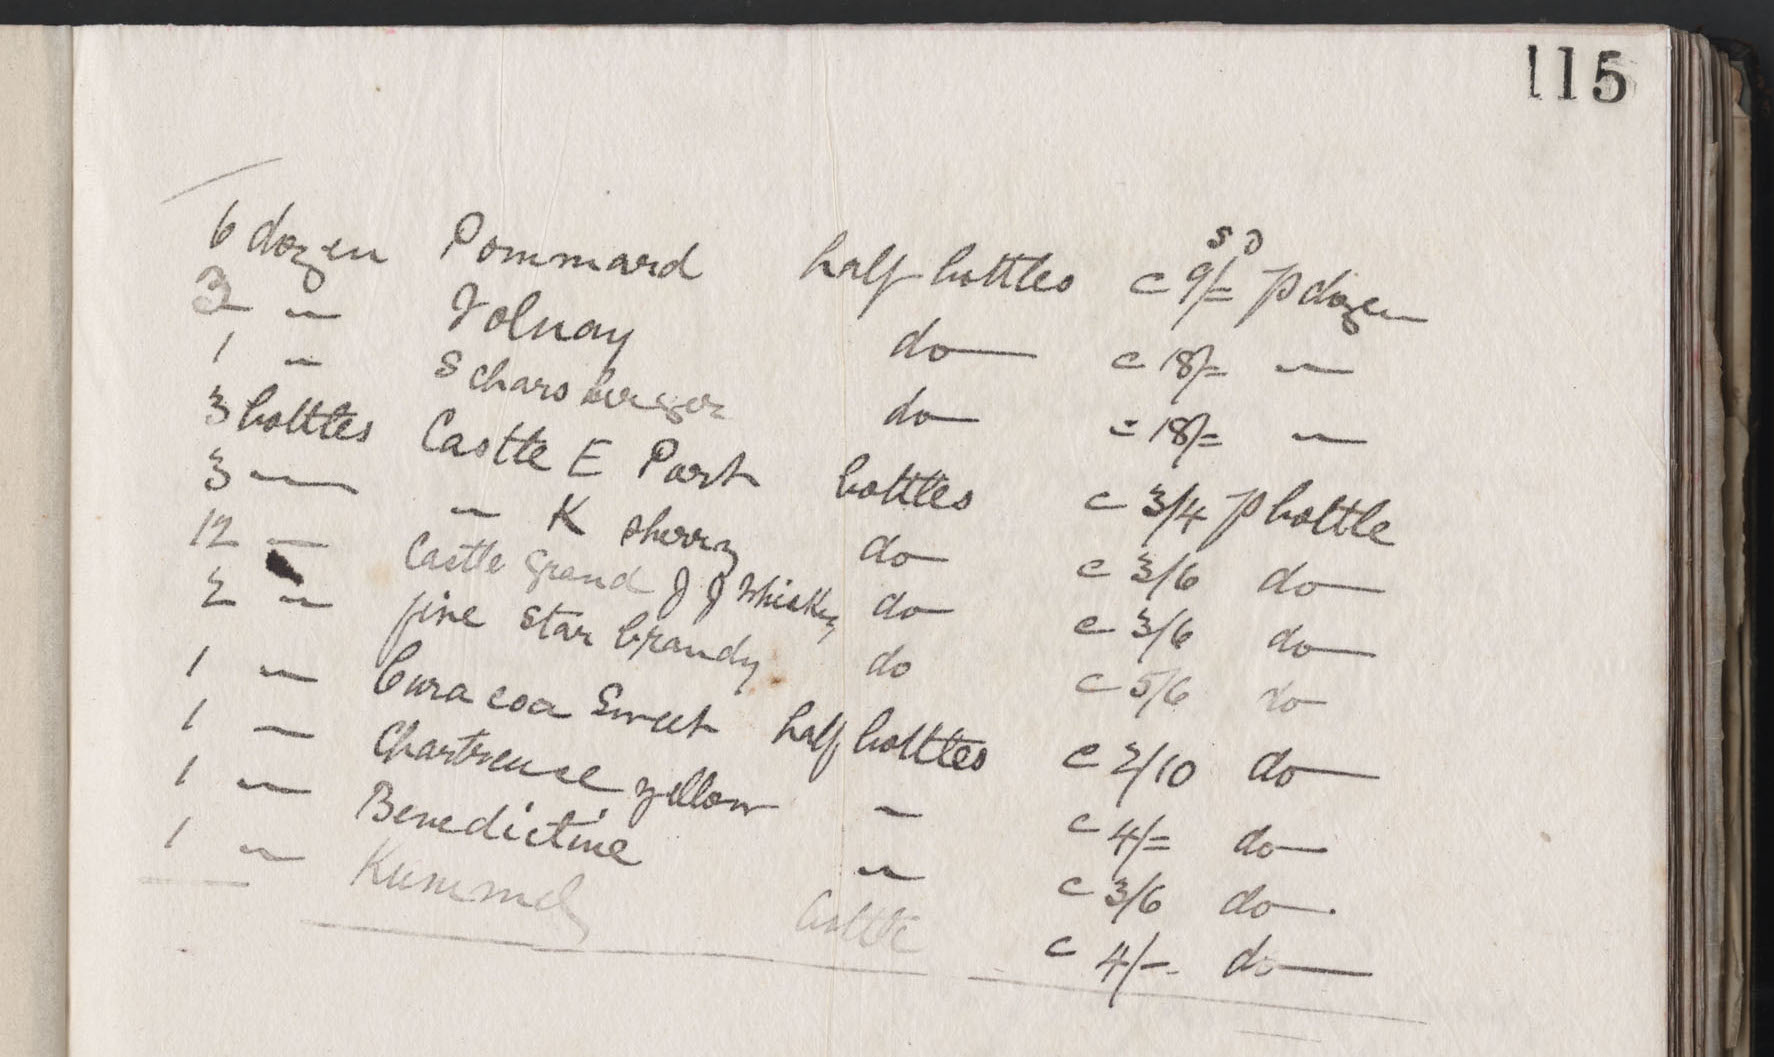 115
S D
6 dozen Pommard half bottles c 9/= p dozen
3 " Volnay do c 18/= "
1 " Scharsberger do c 18/= "
3 bottles Castle E Port bottles c 3/4 p bottle
3 " " K sherry do c 3/6 do
12 " Castle Grand J J Whisky do c 3/6 do
2 " fine Star brandy do c 5/6 do
1 " Curacoa Sweet half bottles c 2/10 do
1 " Chartreuse yellow " c 4/= do
1 " Benedictine " c 3/6 do
1 " Kummel bottle c 4/- do